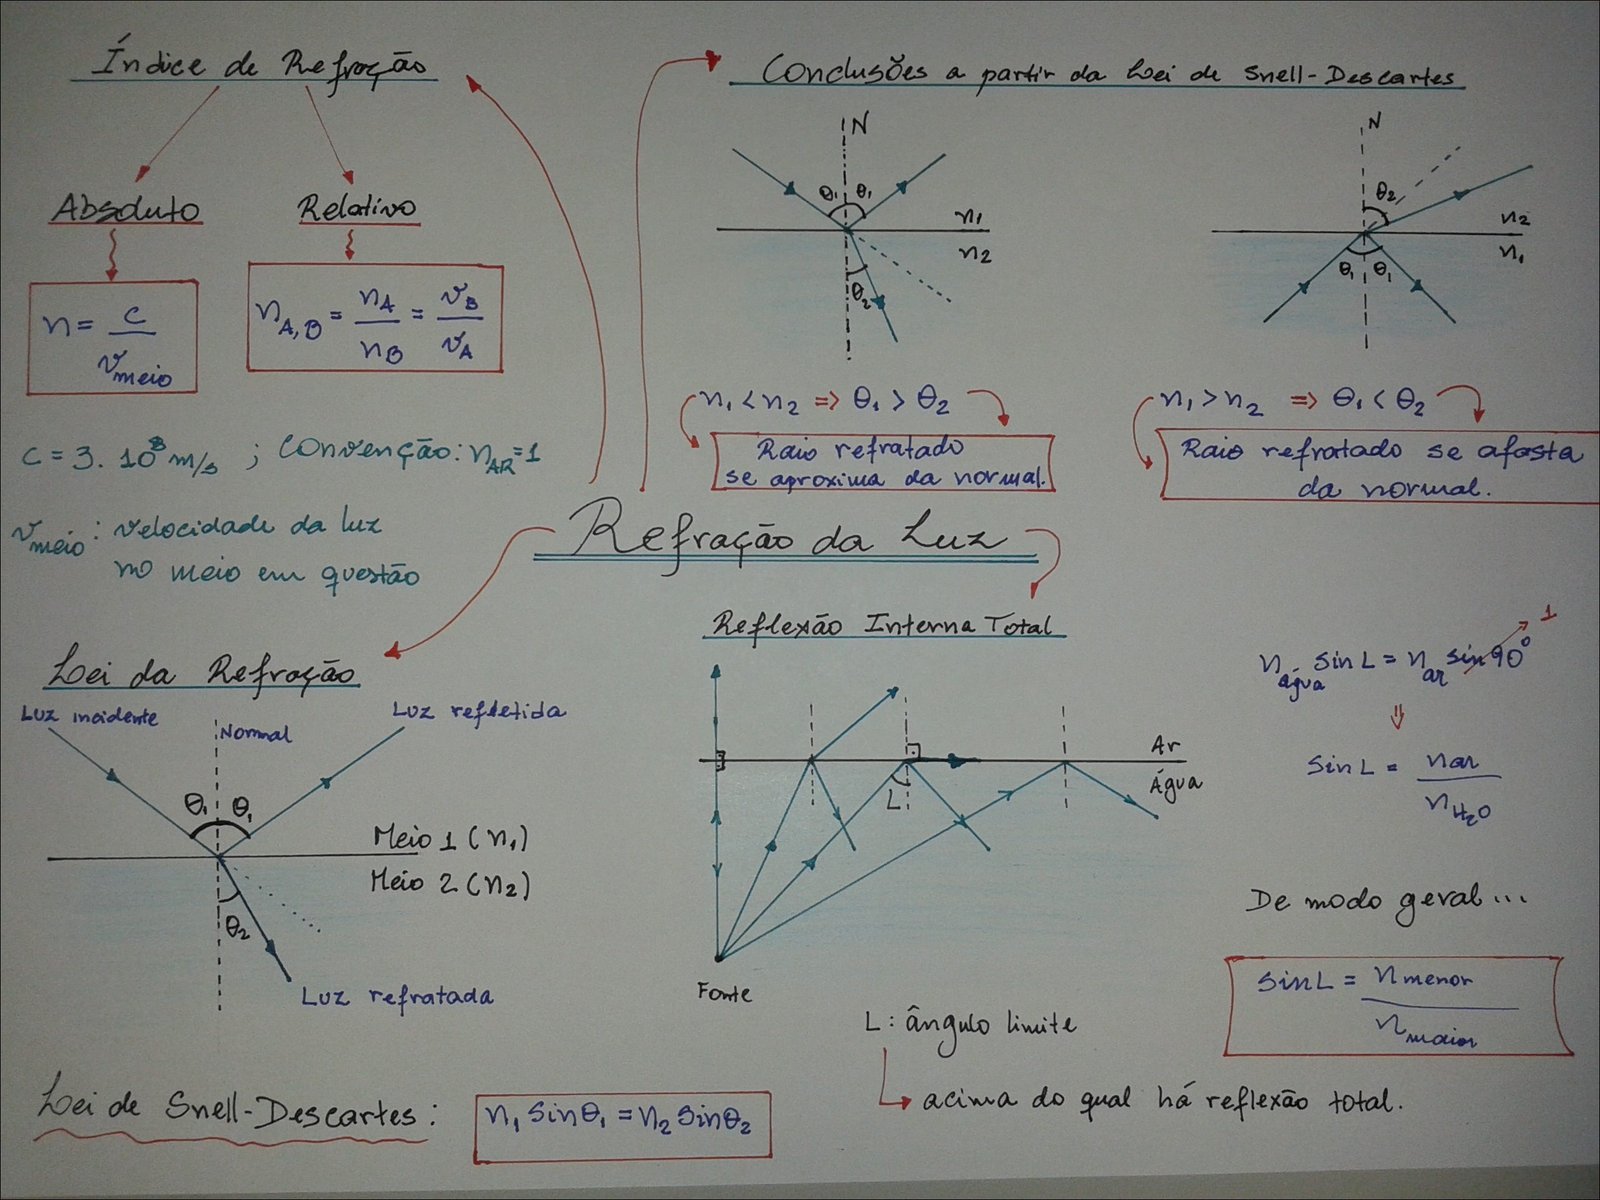 Índice de Refração
Absoluto
Relativo
n = c / v meio
n A,B = n A / n B = v B / v A
c = 3. 10⁸ m/s ; Convenção: n AR = 1
v meio : velocidade da luz
no meio em questão
Conclusões a partir da Lei de Snell-Descartes
N
θ₁ θ₁
n₁
n₂
θ₂
n₁ < n₂ => θ₁ > θ₂
Raio refratado
se aproxima da normal.
N
θ₂
n₂
n₁
θ₁ θ₁
n₁ > n₂ => θ₁ < θ₂
Raio refratado se afasta
da normal.
Refração da Luz
Lei da Refração
Luz incidente
Normal
Luz refletida
θ₁ θ₁
Meio 1 (n₁)
Meio 2 (n₂)
θ₂
Luz refratada
Lei de Snell-Descartes:
n₁ sinθ₁ = n₂ sinθ₂
Reflexão Interna Total
Ar
Água
L
Fonte
L: ângulo limite
acima do qual há reflexão total.
1
n água sin L = n ar sin 90°
⇓
sin L = n ar / n H₂O
De modo geral...
sin L = n menor / n maior